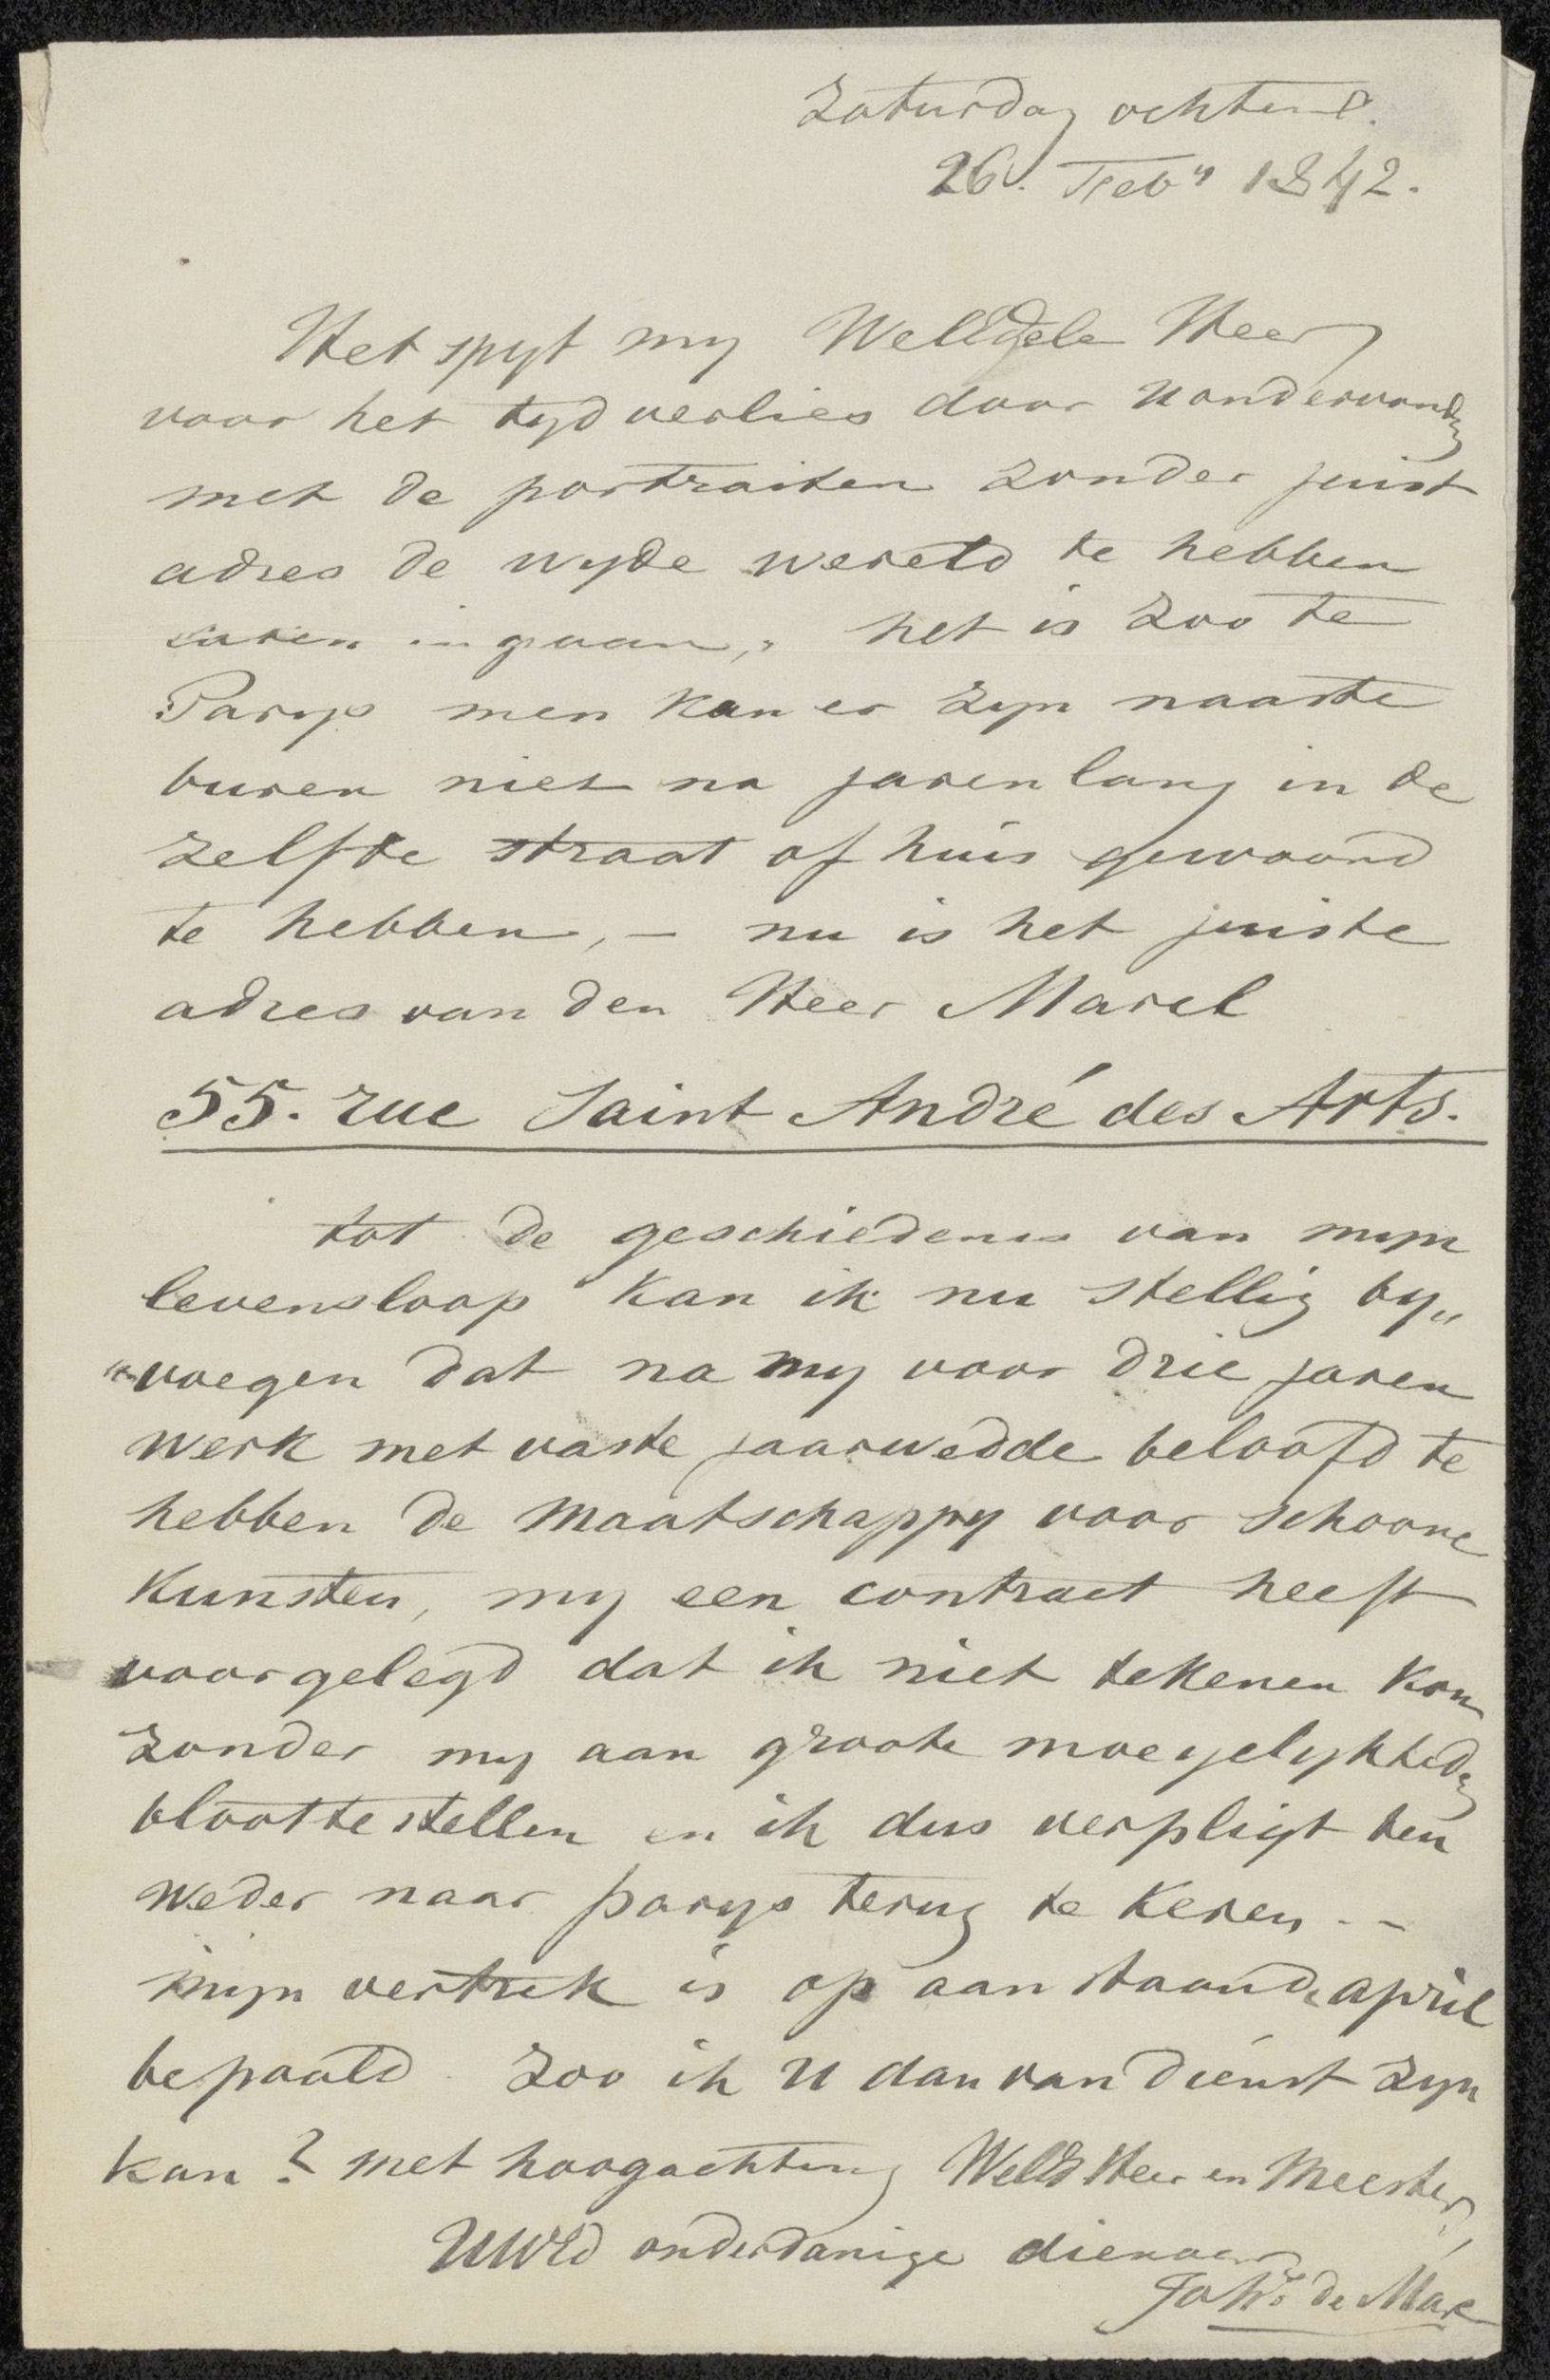 Zaturdag ochtend.
26. Feb" 1842.
Het spyt my WelEdele Heer
voor het tydverlies door U ondervonden
met de portraiten zonder juist
adres de wyde wereld te hebben
laten ingaan, het is zoo te
Parys men kan er zyn naaste
buren niet na jarenlang in de
zelfde straat of huis gewoond
te hebben, – nu is het juiste
adres van den Heer Marel
55. rue Saint André des Arts.
tot de geschiedenis van myn
levensloop kan ik nu stellig by„
„voegen dat na my voor drie jaren
werk met vaste jaarwedde beloofd te
hebben de Maatschappy voor schoone
Kunsten, my een contract heeft
voorgelegd dat ik niet tekenen kon
zonder my aan groote moeyelykheden
bloot te stellen en ik dus verpligt ben
weder naar parys terug te keren --
myn vertrek is op aanstaande april
bepaald zoo ik U dan van dienst zyn
kan? met hoogachting WelEd Heer en Meester,
UWEd onderdanige dienaar
Johs. de Mare